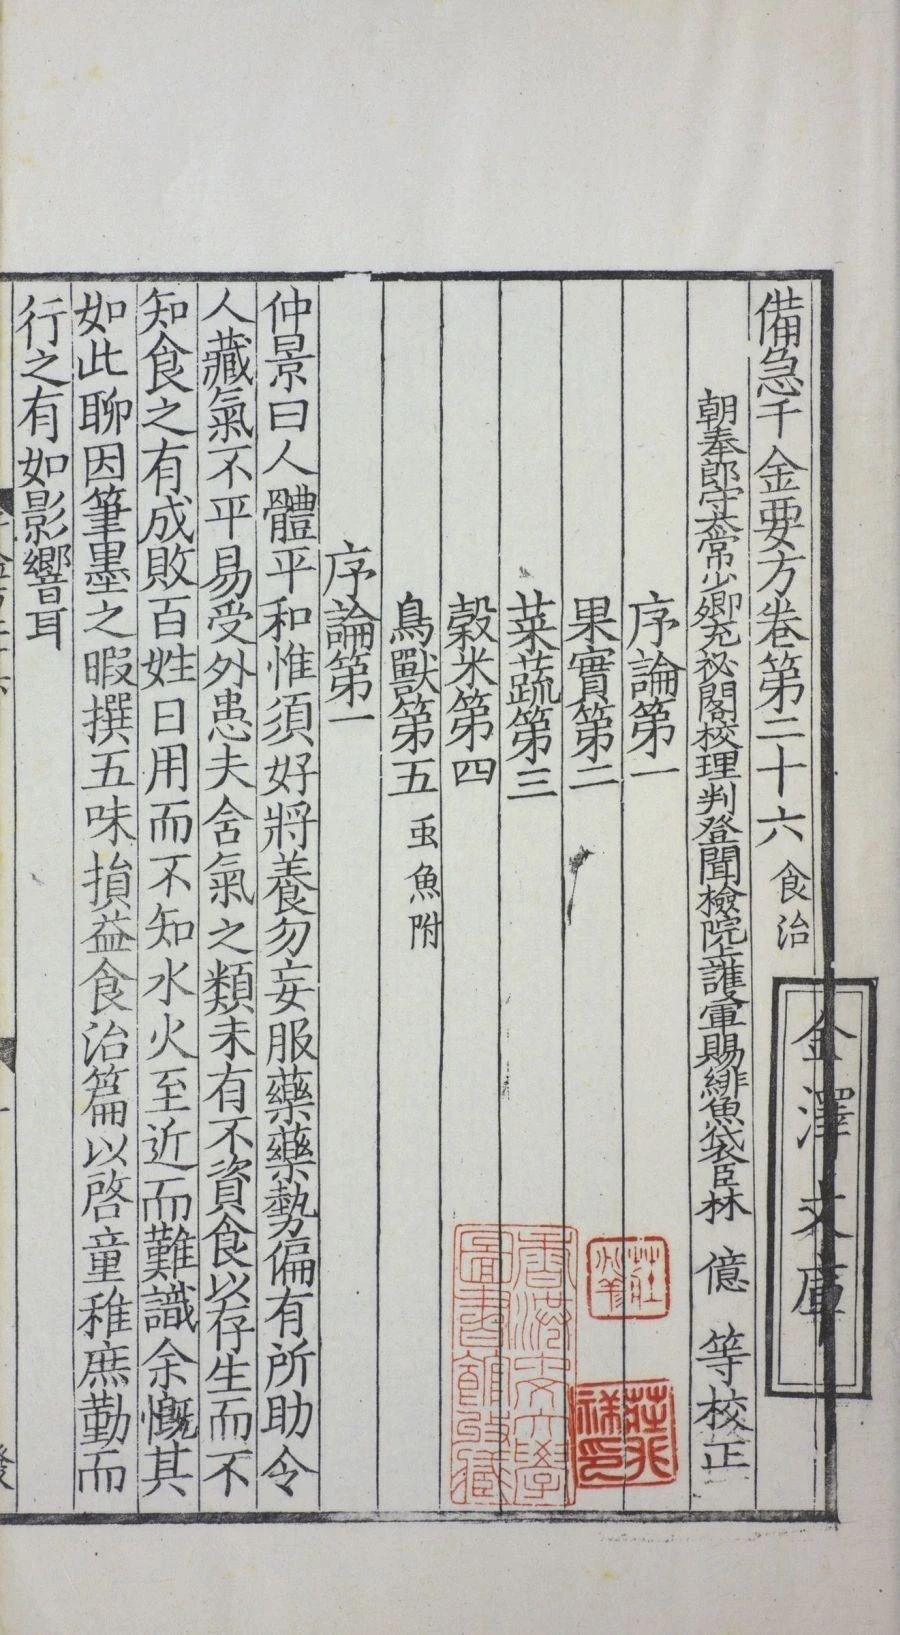 備急千金要方卷第二十六 食治
朝奉郎守太常少卿充秘閣校理判登聞檢院上護軍賜緋魚袋臣林 億 等校正
序論第一
果實第二
菜蔬第三
穀米第四
鳥獸第五 䖝魚附
序論第一
仲景曰人體平和惟須好將養勿妄服藥藥勢偏有所助令
人藏氣不平易受外患夫含氣之類未有不資食以存生而不
知食之有成敗百姓日用而不知水火至近而難識余慨其
如此聊因筆墨之暇撰五味損益食治篇以啓童稚庶勤而
行之有如影響耳
金澤文庫
香港中文大學
圖書館珍藏